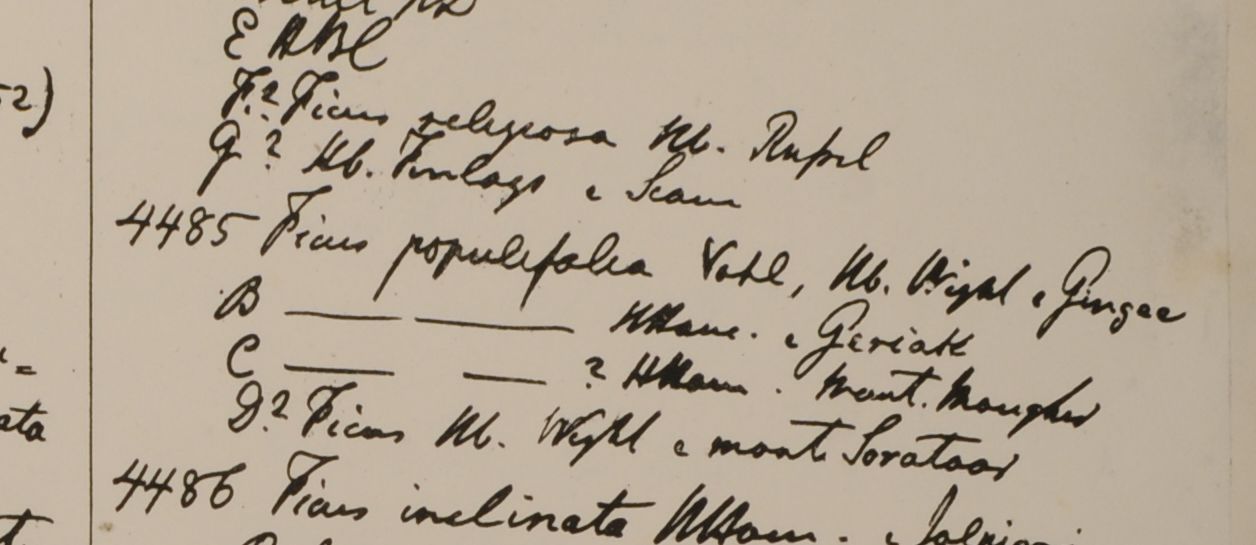 E HBC
F.? Ficus religiosa Hb. Russel
G ? Hb. Finlays e Siam
52)
4485 Ficus populifolia Vahl, Hb. Wight e Gingee
B —— —— HHam. e Geriak
C —— —— ? HHam. Mont. Mongher
D? Ficus Hb. Wight e mont
ata
4486 Ficus inclinata HHam.